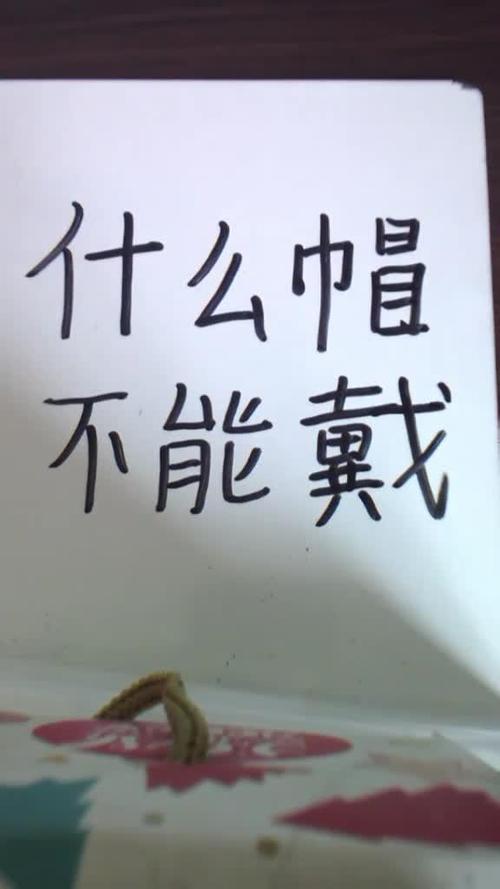 什么帽
不能戴